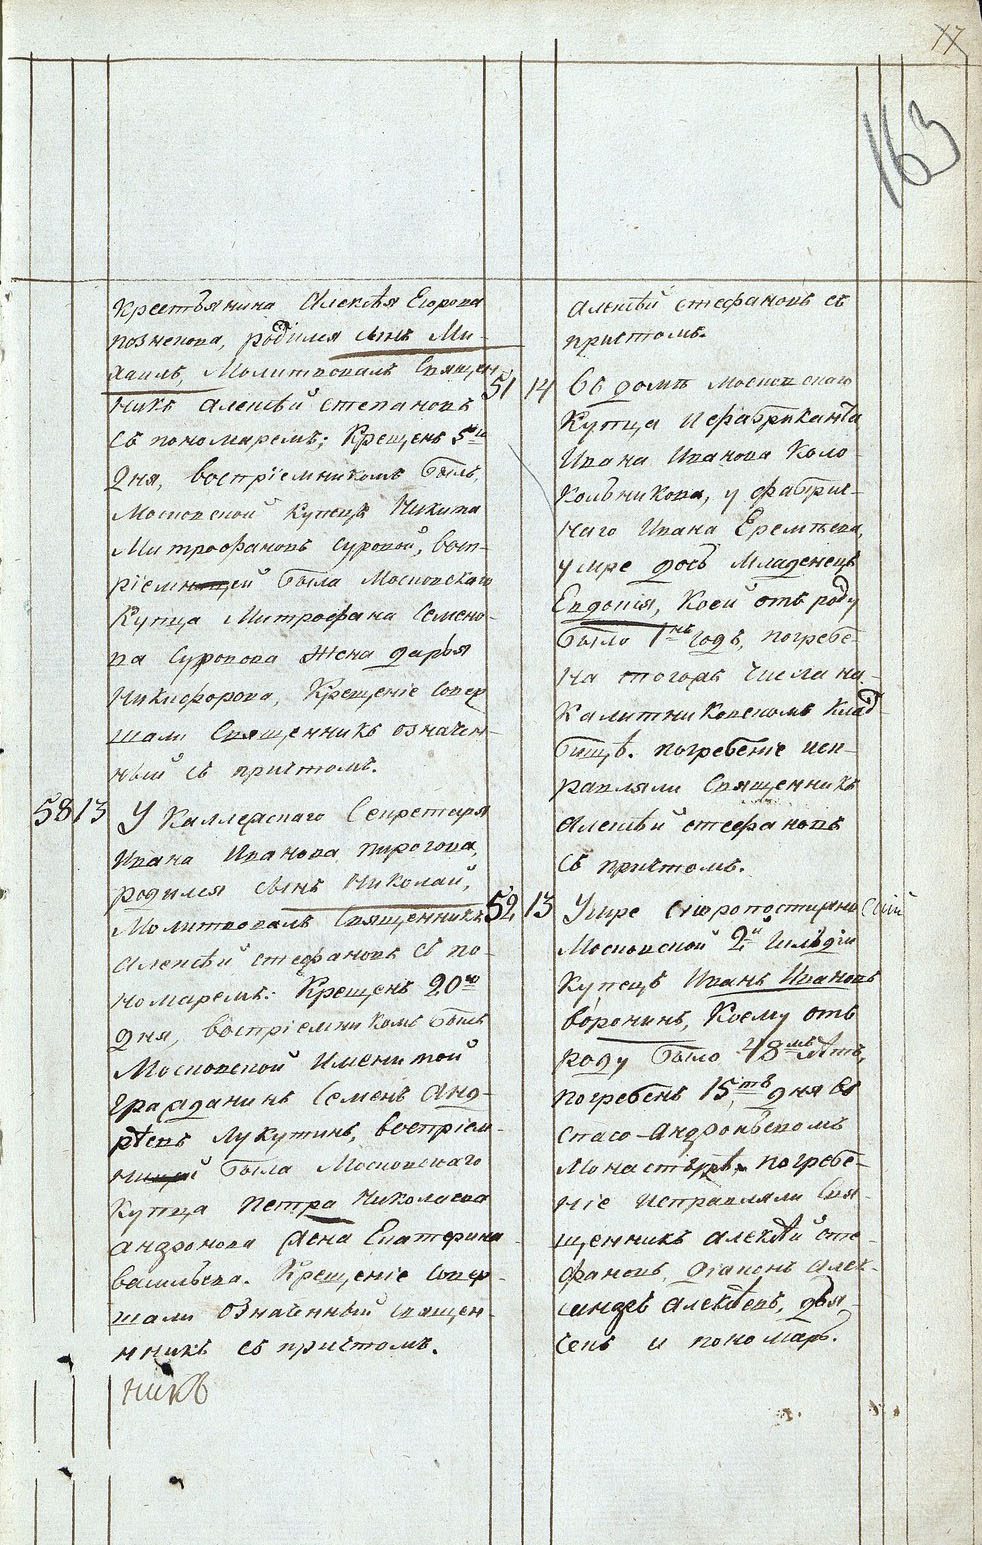 17
163
Крестьянина Алексѣя Егорова
познекова, родился сынъ Ми-
хаилъ, Молитвовалъ Священ
никъ алексѣй степановъ
съ пономаремъ; Крещенъ 5го
дня, воспріемникомъ былъ,
Московской купецъ Никита
Митрофановъ суровой, восп-
ріемницей была Московскаго
Купца Митрофана Семено-
ва суровова жена дарья
Никифорова, Крещеніе совер
шали Священникъ означен-
ный съ причтомъ.
58 13 У Каллежскаго Секретаря
Ивана Иванова пирогова,
родился сынъ Николай,
Молитвовалъ Священникъ
алексѣй стефановъ съ по-
номаремъ: Крещенъ 20го
дня, воспріемникомъ былъ
Московской Именитой
гражданинъ Семенъ Анд-
рѣевъ Лукутинъ, воспріем-
ницей была Московскаго
Купца Петра Николаева
андронова жена Екатерина
васильева. Крещеніе совер-
шали Означенный священ-
нникъ съ причтомъ.
никъ
алексѣй стефановъ съ
причтомъ.
51 14 Въ домѣ московскаго
Купца и фабриканта
Ивана Иванова Коло-
кольникова, у фабрич-
наго Ивана Еремѣева,
умре дочь младенецъ
Евдокія, Коей отъ роду
было 1нъ годъ, погребе-
на тогожъ числа на
Калитниковскомъ клад-
бищѣ. погребеніе исп-
равляли Священникъ
алексѣй стефановъ
съ причтомъ.
52 13 Умре скоропостижно сый
Московской 2й Гильдіи
Купецъ Иванъ Ивановъ
воронинъ, Коему отъ
роду было 48мь лѣтъ,
погребенъ 15,тъ дня въ
спасо-андроньевомъ
Монастырѣ, погребе-
ніе исправляли свя-
щенникъ алексѣй сте-
фановъ, діаконъ алек-
сандръ алексѣевъ, дья-
чекъ и пономарь.